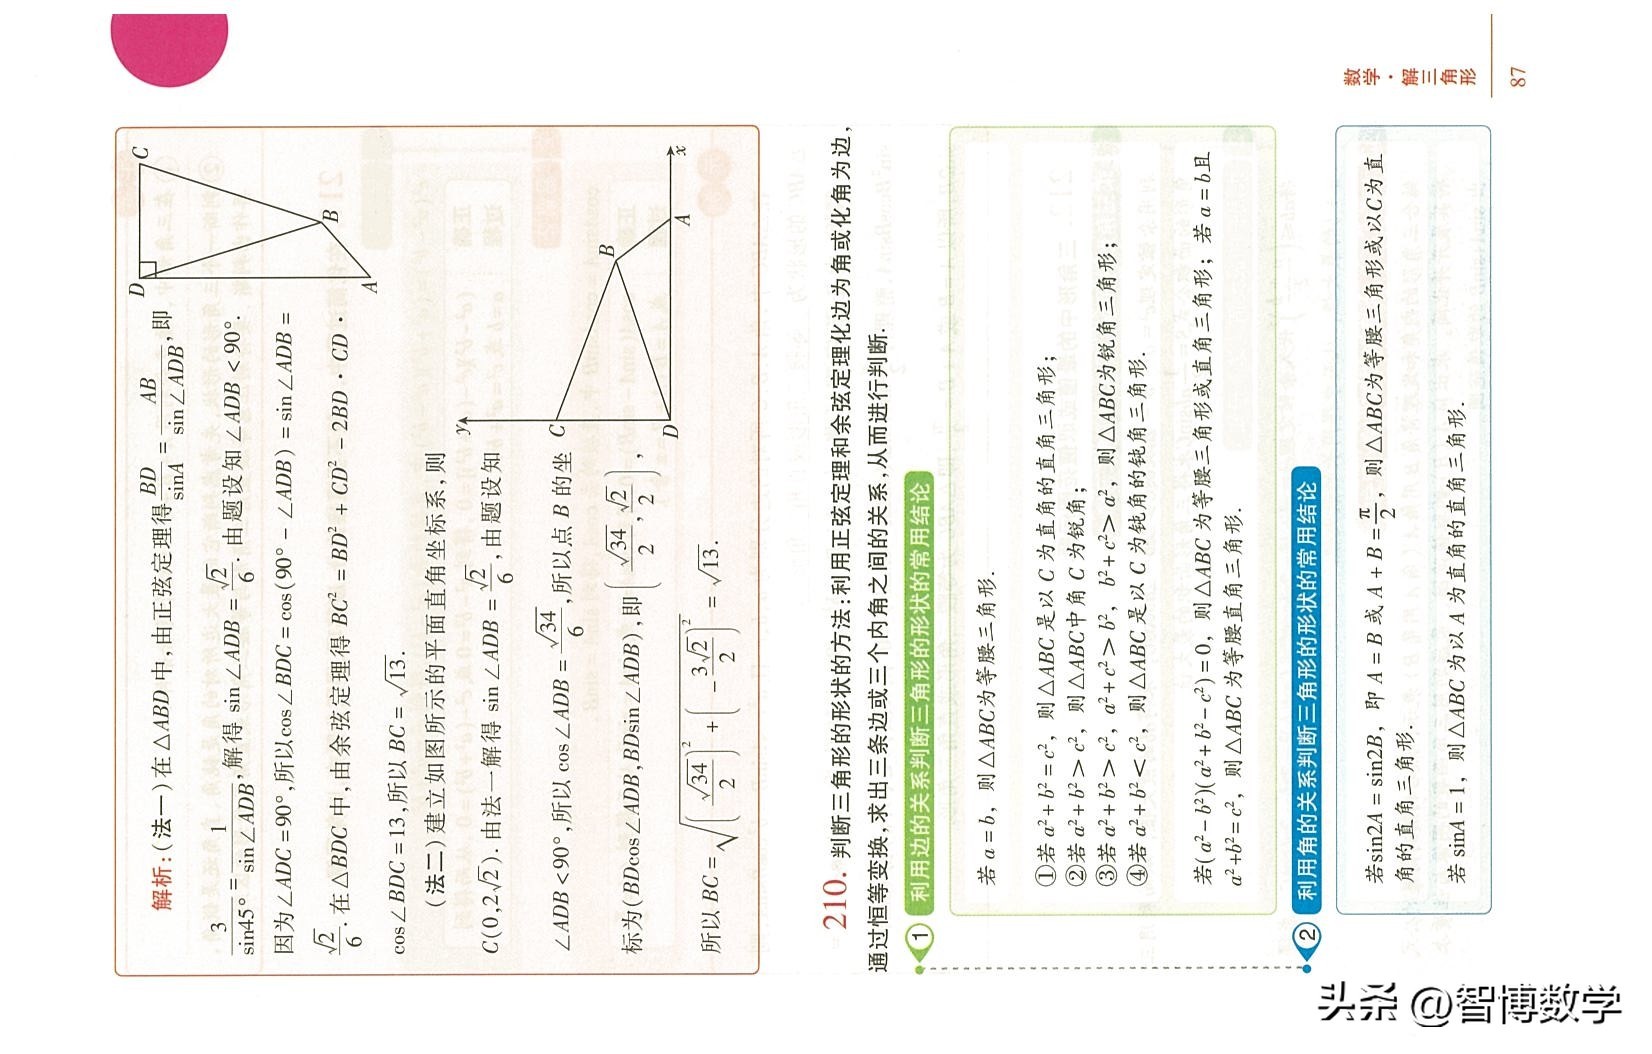 解析:(法一)在△ABD中,由正弦定理得$\frac{BD}{\sin A}=\frac{AB}{\sin∠ADB}$,即
$\frac{3}{\sin45°}=\frac{1}{\sin∠ADB}$,解得$\sin∠ADB=\frac{\sqrt{2}}{6}$.由题设知∠ADB<90°.
因为∠ADC=90°,所以cos∠BDC=cos(90°-∠ADB)=sin∠ADB=
$\frac{\sqrt{2}}{6}$.在△BDC中,由余弦定理得BC²=BD²+CD²-2BD·CD·
cos∠BDC=13,所以BC=$\sqrt{13}$.
(法二)建立如图所示的平面直角坐标系,则
C(0,2$\sqrt{2}$).由法一解得sin∠ADB=$\frac{\sqrt{2}}{6}$,由题设知
∠ADB<90°,所以cos∠ADB=$\frac{\sqrt{34}}{6}$,所以点B的坐
标为(BDcos∠ADB,BDsin∠ADB),即$\left(\frac{\sqrt{34}}{2},\frac{\sqrt{2}}{2}\right)$,
所以BC=$\sqrt{\left(\frac{\sqrt{34}}{2}\right)^2+\left(-\frac{3\sqrt{2}}{2}\right)^2}=\sqrt{13}$.
D
C
B
A
y
C
B
D
A
x
210.判断三角形的形状的方法:利用正弦定理和余弦定理化边为角或化角为边,
通过恒等变换,求出三条边或三个内角之间的关系,从而进行判断.
1 利用边的关系判断三角形的形状的常用结论
若a=b，则△ABC为等腰三角形.
①若a²+b²=c²，则△ABC是以C为直角的直角三角形；
②若a²+b²>c²，则△ABC中角C为锐角；
③若a²+b²>c²，a²+c²>b²，b²+c²>a²，则△ABC为锐角三角形；
④若a²+b²<c²，则△ABC是以C为钝角的钝角三角形.
若(a²-b²)(a²+b²-c²)=0，则△ABC为等腰三角形或直角三角形；若a=b且
a²+b²=c²，则△ABC为等腰直角三角形.
2 利用角的关系判断三角形的形状的常用结论
若sin2A=sin2B，即A=B或A+B=$\frac{π}{2}$，则△ABC为等腰三角形或以C为直
角的直角三角形.
若sinA=1，则△ABC为以A为直角的直角三角形.
数学·解三角形
87
头条 @智博数学